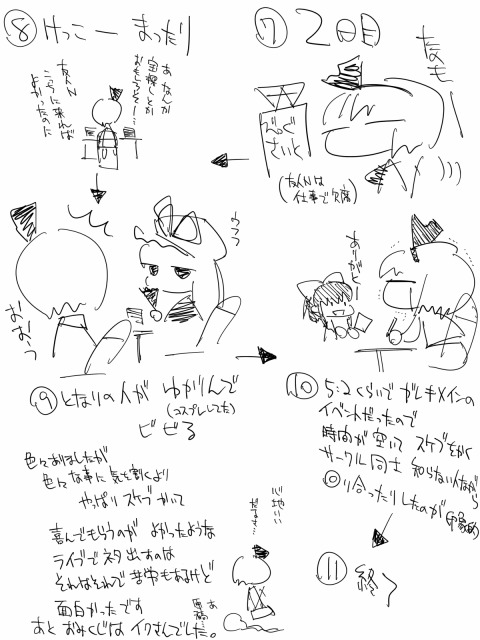 ⑦ 2日目
だも
びっぐ
さいと
(友人Nは
仕事で欠席)
⑧ けっこー まったり
あ なんか
宝探しとか
おもしろそー…
友人N
こっちに来れば
よかったのに
おおっ
ううっ
⑨ となりの人が ゆかりんで
(コスプレしてた)
ビビる
ありがとー
⑩ 5:2くらいで ガレキメインの
イベントだったので
時間が空いて スケブをかく
サークル同士 知らない人ながら
り合ったりしたのが 印象的
⑪ 終了
色々ありましたが
色々な事に 気を割くより
やっぱり スケブ かいて
喜んでもらうのが よかったような
ライブでネタ出すのは
それはそれで 苦労もあるけど
面白かったです
あと おみくじは イクさんでした。
心地いい
だるさ…
あ
原稿…